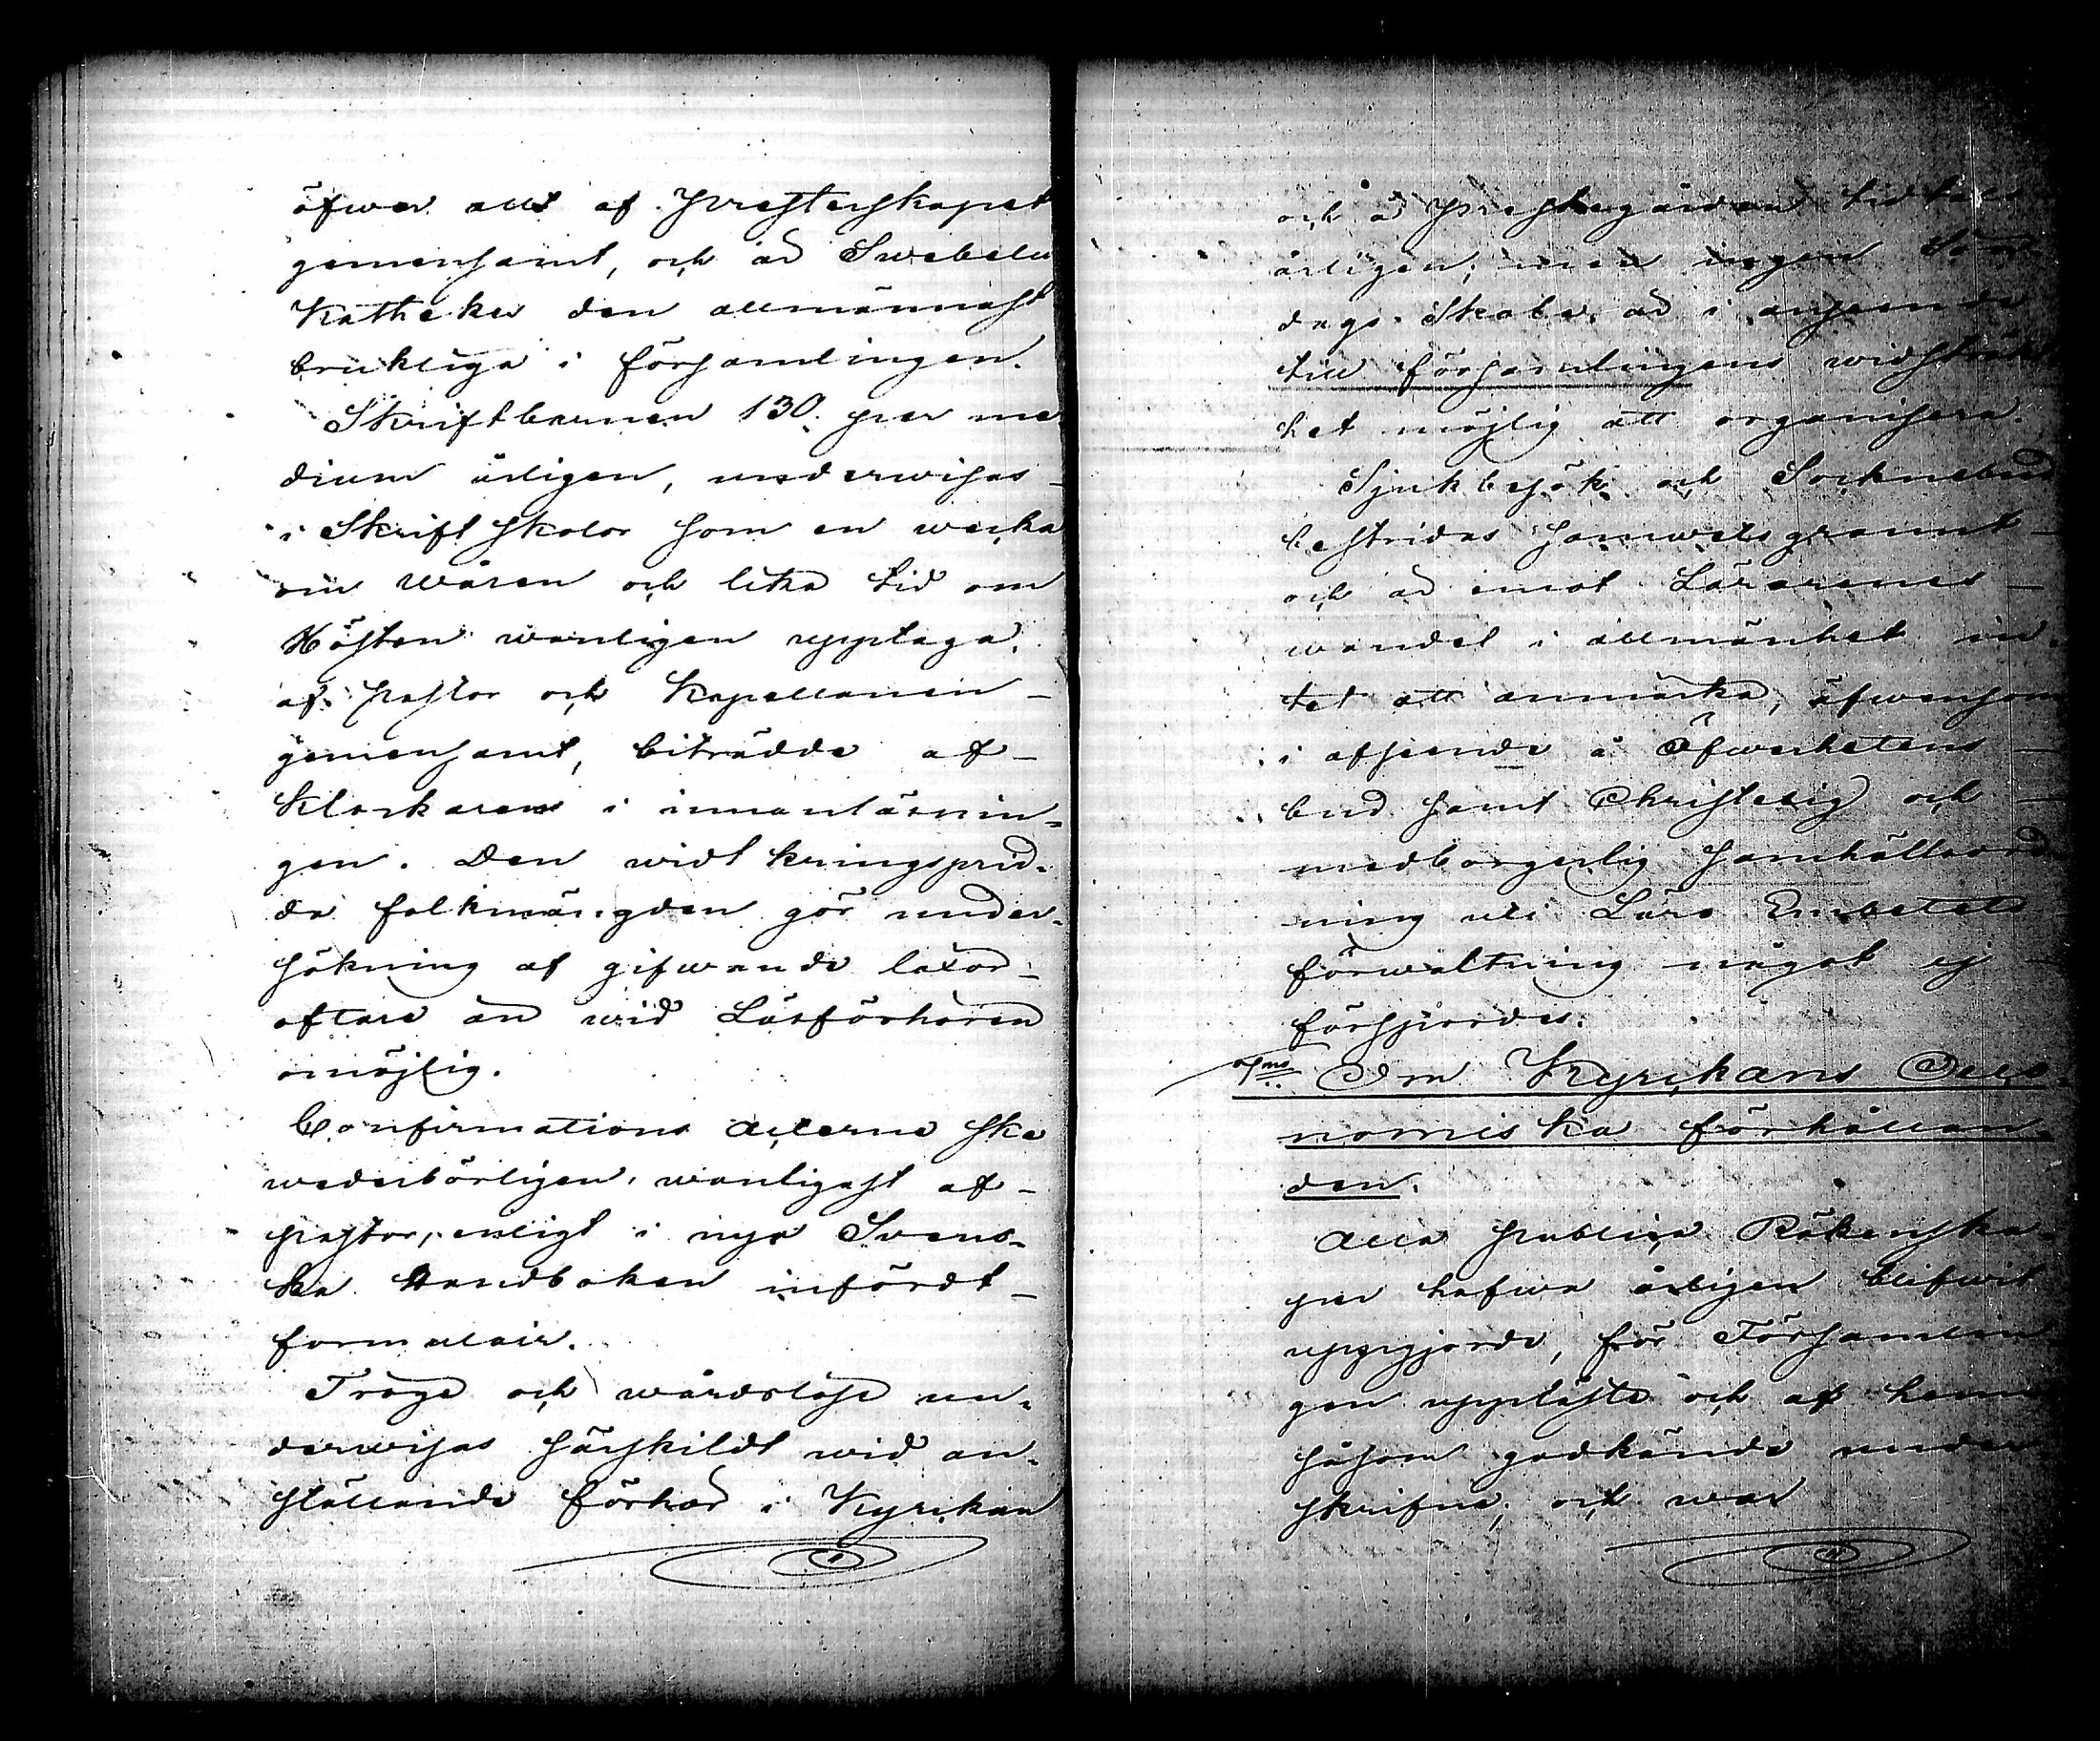 öfwer allt af Presterskapet
gemensamt, och är Swebelii
Kathekes den allmännast
brukliga i församlingen.
Skriftbarnen 130. per me
dium årligen, underwisas
i Skriftskolor som en wecka
om wåren och lika tid om
Hösten wanligen upptaga,
af Pastor och Kapellanen
gemensamt, biträdde af
Klockaren i innanläsnin-
gen. Den widt kringsprid-
da folkmängden gör under-
sökning af gifwande läxor
oftare än wid Läsförhören
omöjlig.
Confirmations Acterne ske
wederbörligen, wanligast af
pastor, enligt i nya Svens-
ka Handboken infördt
formulair.
Tröge och wårdslöse un-
derwisas särskildt wid an-
ställande förhör i Kyrckan
och å Prestegården tidtals
årligen; men ingen Sön
dags-Skola är i anseende
till församlingens widsträckt
het möjlig att organisera.
Sjukbesök och Socknebud
bestridas samwetsgrannt
och är emot Lärarenes
wandel i allmänhet in-
tet att anmärka, äfwensom
i afseende å Öfwerhetens
bud samt Christelig och
medborgerlig samhällsord
ning uti Läro Embetets
förwaltning något ej
förspordes.
7mo Om Kyrckans Oeco-
nomiska förhållan-
den.
Alla publica Räkenska-
per hafwa årligen blifwit
uppgjorde, för Församlin
gen uppläste och af henne
såsom godkände under
skrifne; och war